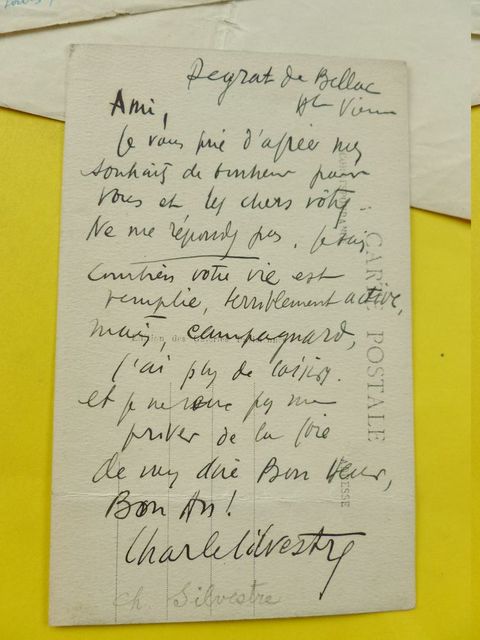 Peyrat de Bellac
Hte Vienne
Ami,
Je vous prie d'agréer mes
souhaits de bonheur pour
vous et les chers vôtres.
Ne me répondez pas. Je sais
combien votre vie est
remplie, terriblement active,
mais, campagnard,
j'ai plus de loisirs.
et je ne veux pas me
priver de la joie
de vous dire Bon
Bon An!
Charles Silvestre
Ch Silvestre
CARTE POSTALE